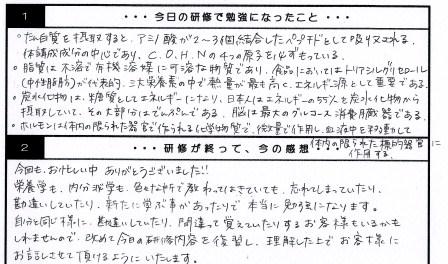 1 ・・・今日の研修で勉強になったこと・・・
・たん白質を摂取すると、アミノ酸が2〜3個結合したペプチドとして吸収される。
体構成成分の中心であり、C.O.H.Nの4つの原子を必ずもっている。
・脂質は不溶で有機溶媒に可溶な物質であり、食品においてはトリアシルグリセロール
(中性脂肪)が代表的。三大栄養素の中で熱量が最も高く、エネルギー源として重要である。
・炭水化物は、糖質としてエネルギーになり、日本人はエネルギーの55%を炭水化物から
摂取していて、その大部分はでんぷんである。脳は最大のグルコース消費臓器である。
・ホルモンは体内の限られた器官で作られる化学物質で、微量で作用し、血液中を移動して
体内の限られた標的器官に
作用する。
2 ・・・研修が終って、今の感想
今回も、お忙しい中 ありがとうございました!!
栄養学も、内分泌学も、色々な所で教わってはきていても、忘れてしまっていたり、
勘違いしていたり、新たに学ぶ事があったりで 本当に勉強になります。
自分と同じ様に、勘違いしていたり、間違って覚えていたりするお客様もいるかも
しれませので、改めて今日の研修内容を復習し、理解した上で お客様に
お話しさせて頂けるようにいたします。